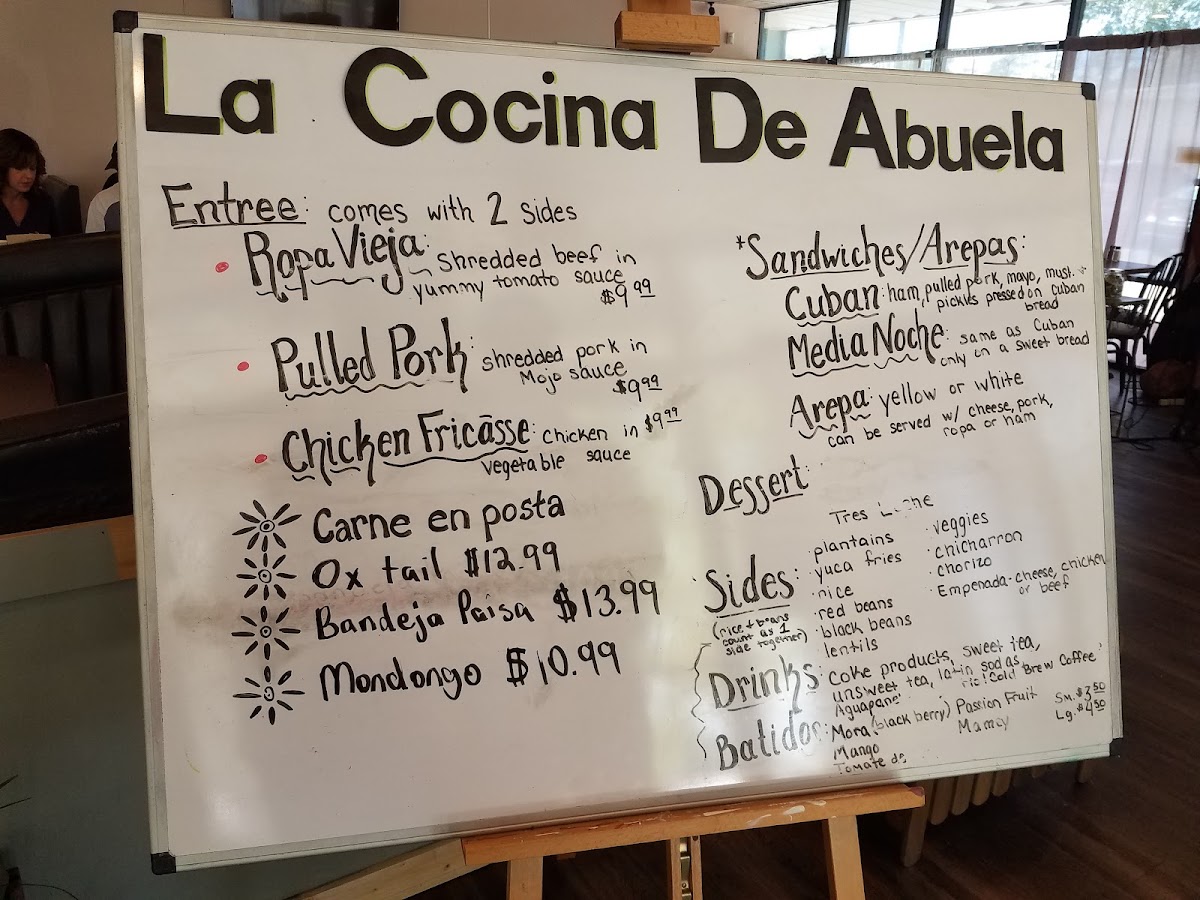 La Cocina De Abuela
Entree: comes with 2 sides
Ropa Vieja: shredded beef in
yummy tomato sauce
$9.99
Pulled Pork: shredded pork in
Mojo sauce
$9.99
Chicken Fricāsse: chicken in $9.99
vegetable sauce
Carne en posta
Ox tail $12.99
Bandeja Paisa $13.99
Mondongo $10.99
*Sandwiches/Arepas:
Cuban: ham, pulled pork, mayo, must. +
pickles pressed on Cuban
bread
Media Noche: same as Cuban
only on a sweet bread
Arepa: yellow or white
can be served w/ cheese, pork,
ropa or ham
Dessert:
Tres
Sides:
(rice + beans
count as 1
side together)
·plantains
·yuca fries
·rice
·red beans
·black beans
·lentils
·veggies
·chicharron
·chorizo
·Empenada-cheese, chicken
or beef
Drinks: coke products, sweet tea,
unsweet tea, latin sodas,
Aguapane Cold Brew Coffee
Batidos: Mora (black berry) Passion Fruit
Mango Mamey
Tomate de
Sm. $3.50
Lg. $4.50